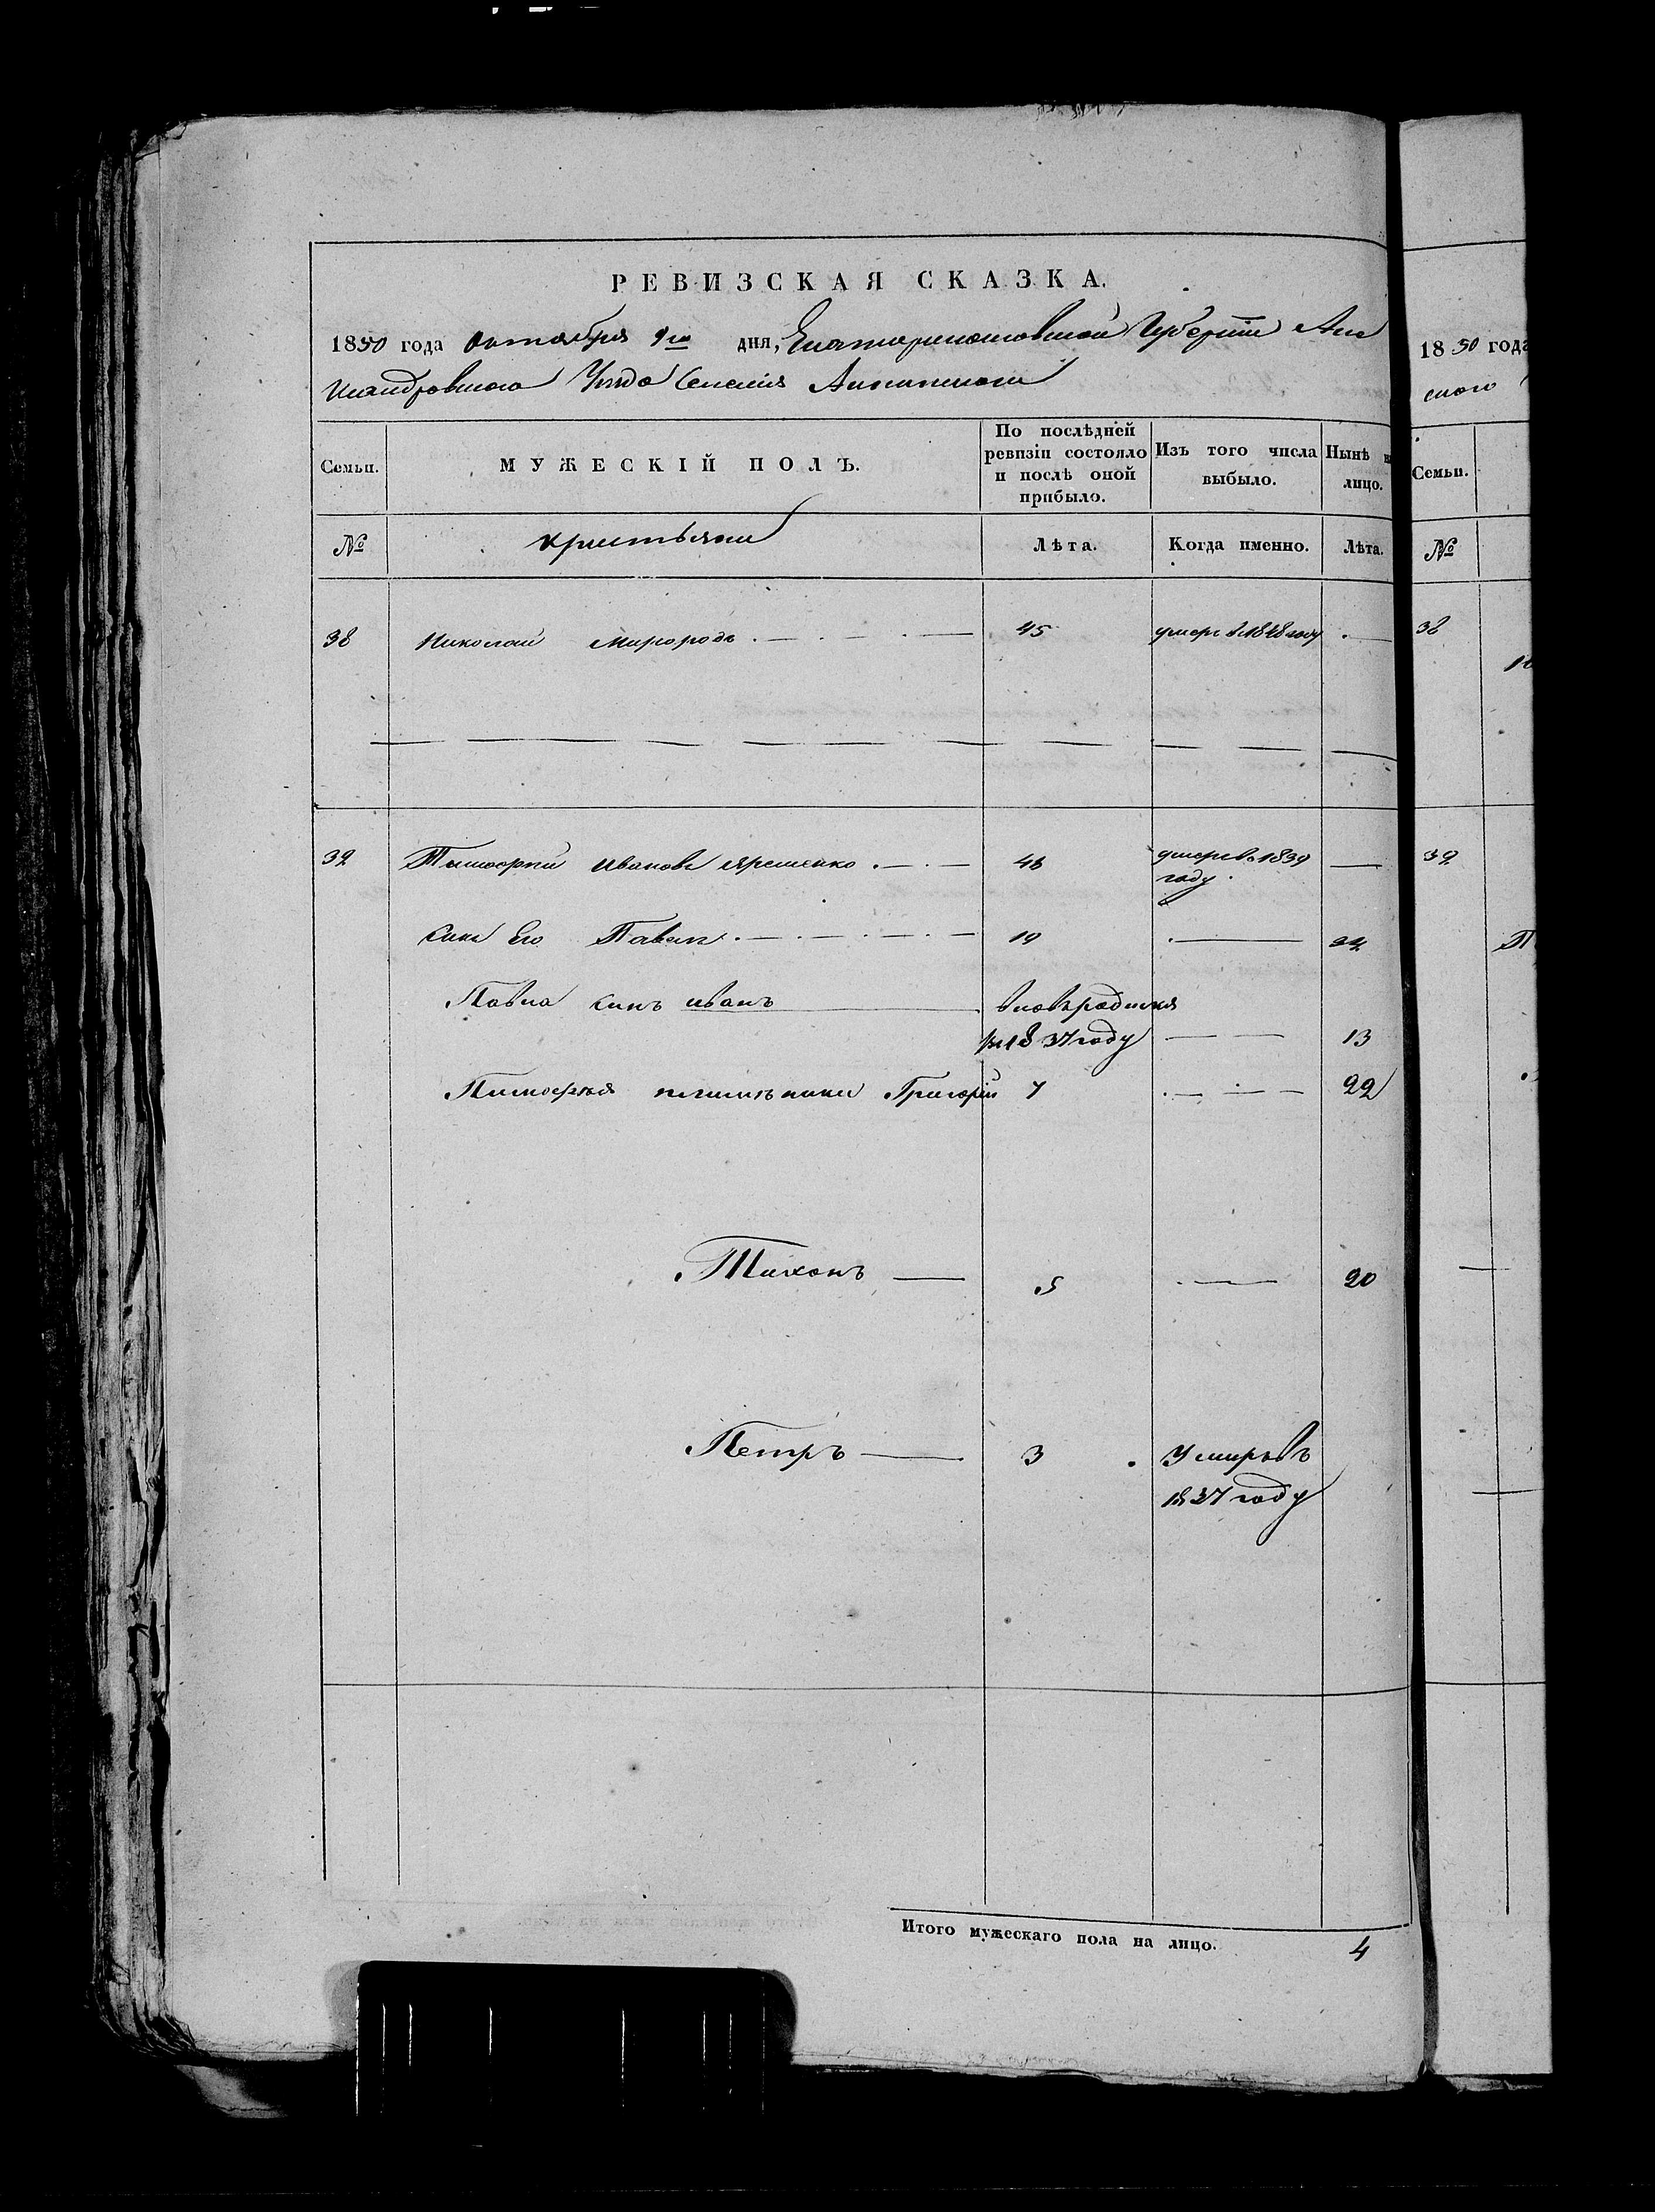 РЕВИЗСКАЯ СКАЗКА.
1850 года октября 9го дня, Екатеринославской Губернии Але
ксандровского Уезда Селения
Семьи.
МУЖЕСКІЙ ПОЛЪ.
По послѣдней ревизіи состояло и послѣ оной прибыло.
Изъ того числа выбыло.
Нынѣ
лицо.
№
крестьяне
Лѣта.
Когда именно.
Лѣта.
38 Николай Миргородъ 45 умеръ в 1848 году
39 Тимофей Ивановъ Ярешенко умеръ в 1839
году
Синъ Его Павелъ 19
Павла Синъ иванъ вновь родился
в 1837 году 13
Тимофея племяники Григорій 7 22
Тихонъ 5 20
Петръ 3 Умиръ въ
1837 году
Итого мужескаго пола на лицо. 4
1850 года
ского
Семьи.
№
38
39